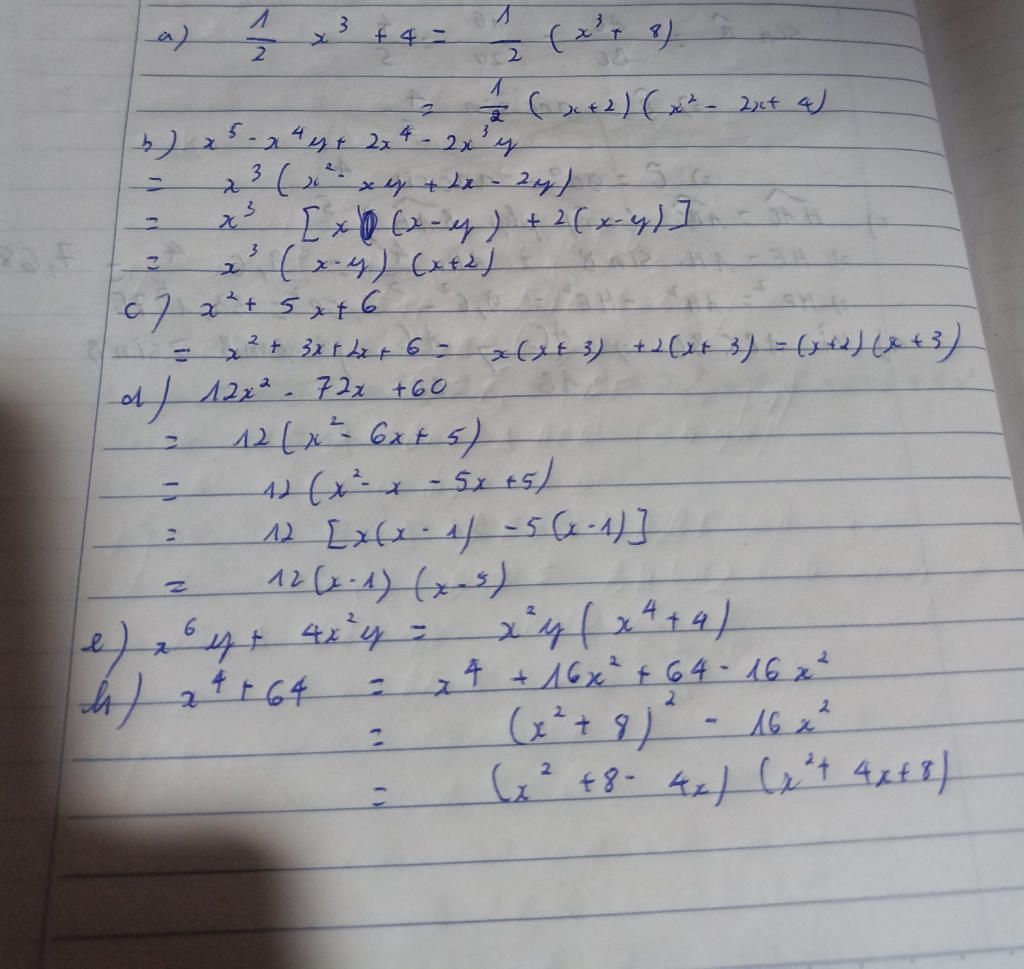 a) 1/2 x³ + 4 = 1/2 (x³ + 8)
= 1/2 (x+2)(x² - 2x + 4)
b) x⁵ - x⁴y + 2x⁴ - 2x³y
= x³ (x² - xy + 2x - 2y)
= x³ [x (x-y) + 2(x-y)]
= x³ (x-y) (x+2)
c) x² + 5x + 6
= x² + 3x + 2x + 6 = x(x+3) + 2(x+3) = (x+2)(x+3)
d) 12x² - 72x + 60
= 12(x² - 6x + 5)
= 12(x² - x - 5x + 5)
= 12 [x(x-1) - 5(x-1)]
= 12(x-1) (x-5)
e) x⁶y + 4x²y = x²y(x⁴ + 4)
h) x⁴ + 64 = x⁴ + 16x² + 64 - 16x²
= (x² + 8)² - 16x²
= (x² + 8 - 4x) (x² + 4x + 8)